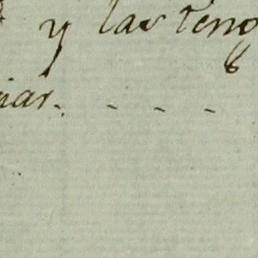 y las teng
iar. - - - -